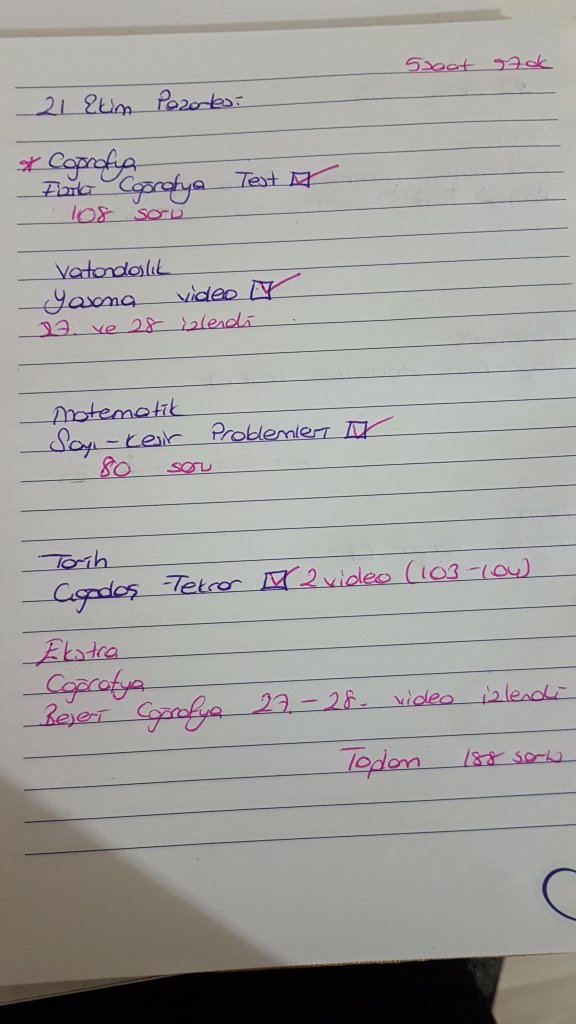 5 saat 57dk
21 Ekim Pazartesi
* Coğrafya
Fiziki Coğrafya Test ☑
108 soru
Vatandaşlık
Yasama video ☑
27. ve 28 izlendi
Matematik
Sayı-Kesir Problemleri ☑
80 soru
Tarih
Çağdaş -Tekrar ☑ 2 video (103-104)
Ekstra
Coğrafya
Beşeri Coğrafya 27.-28. video izlendi
Toplam 188 soru